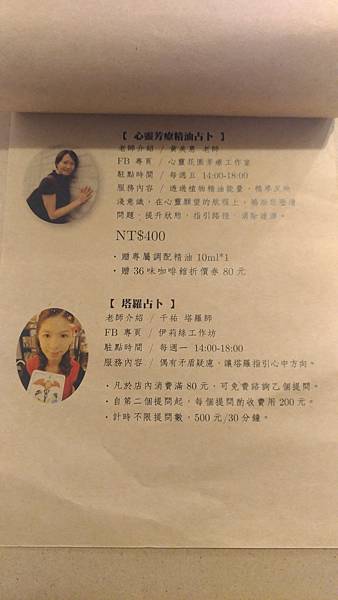 【 心靈芳療精油占卜 】
老師介紹 / 黃美惠 老師
FB 專頁 / 心靈花園芳療工作室
駐點時間 / 每週五 14:00-18:00
服務內容 / 透過植物精油能量，精準反映
淺意識，在心靈願望的旅程上，協助您釐清
問題、提升狀態，指引路徑，消除迷障。
NT$400
· 贈專屬調配精油 10ml*1
· 贈 36 味咖啡館折價券 80 元
【 塔羅占卜 】
老師介紹 / 千祐 塔羅師
FB 專頁 / 伊莉絲工作坊
駐點時間 / 每週一 14:00-18:00
服務內容 / 偶有矛盾疑慮，讓塔羅指引心中方向。
· 凡於店內消費滿 80 元，可免費諮詢乙個提問。
· 自第二個提問起，每個提問酌收費用 200 元。
· 計時不限提問數，500 元/30 分鐘。